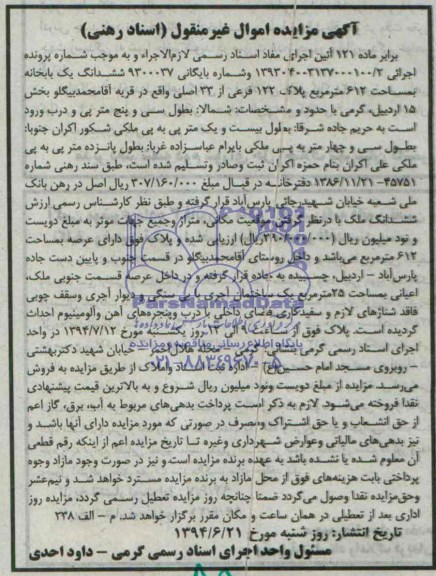 آگهی مزایده اموال غیرمنقول (اسناد رهنی)
برابر ماده ۱۲۱ آئین اجرای مفاد اسناد رسمی لازم‌الاجراء و به موجب شماره پرونده
اجرائی ۱۳۹۳۰۴۰۰۳۱۳۷۰۰۰۱۰۰/۲ وشماره بایگانی ۹۳۰۰۰۳۷ ششدانگ یک بابخانه
بمساحت ۶۱۲ مترمربع پلاک ۱۲۲ فرعی از ۳۳ اصلی واقع در قریه آقامحمدبیگلو بخش
۱۵ اردبیل، گرمی با حدود و مشخصات: شمالا: بطول سی و پنج متر پی و درب ورود
است به حریم جاده شرقا: بطول بیست و یک متر پی به پی ملکی شکور اکران جنوبا:
بطول سی و چهار متر به پی ملکی بایرام عباسزاده غربا: بطول پانزده متر پی به پی
ملکی علی اکران بنام حمزه اکران ثبت وصادر وتسلیم شده است، طبق سند رهنی شماره
۴۵۷۵۱- ۱۳۸۶/۱۱/۲۱ دفترخانه در قبال مبلغ ۳۰۷/۱۶۰/۰۰۰ ریال اصل در رهن بانک
ملی شعبه خیابان شهیدرجائی پارس‌آباد قرار گرفته و طبق نظر کارشناس رسمی ارزش
ششدانگ ملک با درنظر گرفتن موقعیت مکانی، متراژ وجمیع جهات موثر به مبلغ دویست
و نود میلیون ریال ریال) ارزیابی شده و پلاک فوق دارای عرصه بمساحت
۶۱۲ مترمربع می‌باشد و داخل روستای آقامحمدبیگلو در قسمت جنوب و پایین دست جاده
پارس‌آباد - اردبیل، چسبیده به جاده قرار گرفته و در داخل عرصه قسمت جنوبی ملک،
اعیانی بمساحت ۲۵مترمربع یک ساختمان آجری با سنگی و دیوار آجری وسقف چوبی
فاقد شناژهای لازم و سفیدکاری فضای داخلی با درب وپنجره‌های آهن وآلومینیوم احداث
گردیده است. پلاک فوق از ساعت ۹ الی ۱۲ روز یکشنبه مورخ ۱۳۹۴/۷/۱۲ در واحد
اجرای اسناد رسمی گرمی بنشانی: گرمی - محله هلال احمر - خیابان شهید دکتربهشتی
- روبروی مسجد امام حسین(ع) - اداره ثبت اسناد واملاک از طریق مزایده به فروش
می‌رسد. مزایده از مبلغ دویست ونود میلیون ریال شروع و به بالاترین قیمت پیشنهادی
نقدا فروخته می‌شود. لازم به ذکر است پرداخت بدهی‌های مربوط به آب، برق، گاز اعم
از حق انشعاب و یا حق اشتراک ومصرف در صورتی که مورد مزایده دارای آنها باشد و
نیز بدهی‌های مالیاتی وعوارض شهرداری وغیره تا تاریخ مزایده اعم از اینکه رقم قطعی
آن معلوم شده یا نشده باشد به عهده برنده مزایده است و نیز در صورت وجود مازاد وجوه
پرداختی بابت هزینه‌های فوق از محل مازاد به برنده مزایده مسترد خواهد شد و نیم‌عشر
وحق‌مزایده نقدا وصول می‌گردد ضمنا چنانچه روز مزایده تعطیل رسمی گردد، مزایده روز
اداری بعد از تعطیلی در همان ساعت و مکان مقرر برگزار خواهد شد. م - الف ۲۳۸
تاریخ انتشار: روز شنبه مورخ ۱۳۹۴/۶/۲۱
مسئول واحد اجرای اسناد رسمی گرمی - داود احدی
ParsNamadData
پایگاه اطلاع رسانی مناقصه و مزایده
۰۲۱-۸۸۳۴۹۶۷۰-۵